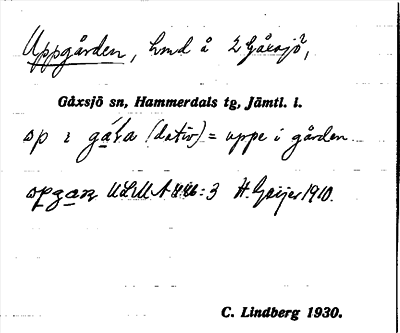 Uppgården, hmd å 2 Gåxsjö,
Gåxsjö sn, Hammerdals tg, Jämtl. l.
up i gáɽa (dativ) = uppe i gården.
upgan ULMA 446:3 H. Geijer 1910.
C. Lindberg 1930.